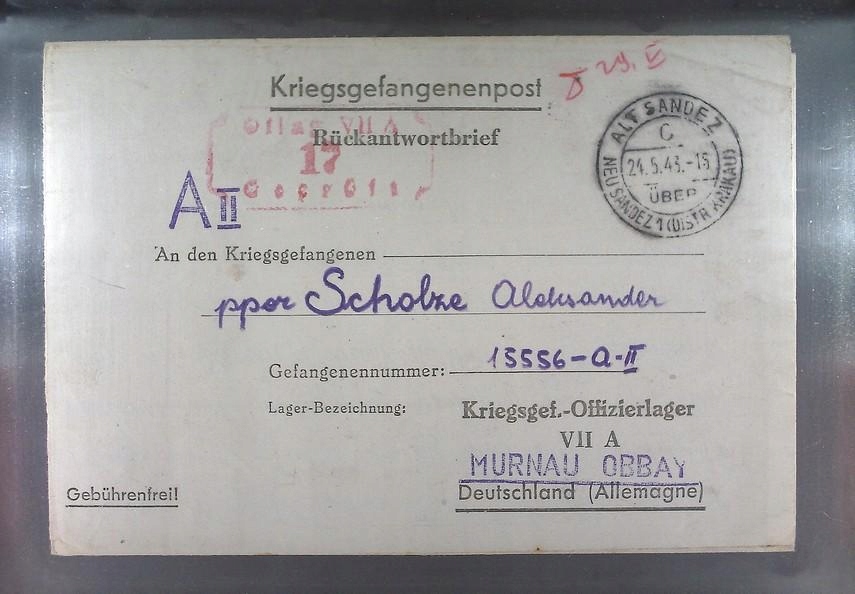 Kriegsgefangenenpost
29. V
Oflag VII A
17
Geprüft
Rückantwortbrief
ALT SANDEZ
C
24.5.43.-15
ÜBER
NEU SANDEZ 1 (DISTR. KRAKAU)
A II
An den Kriegsgefangenen
ppor Scholze Aleksander
Gefangenennummer: 15556-A-II
Lager-Bezeichnung: Kriegsgef.-Offizierlager
VII A
MURNAU OBBAY
Gebührenfrei! Deutschland (Allemagne)